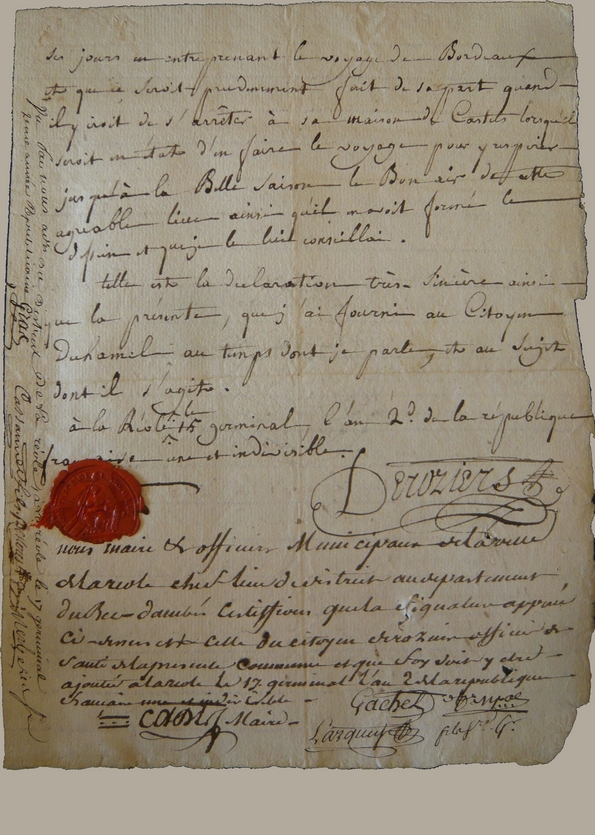 ses jours en entreprenant le voyage de Bordeaux
et que ce seroit prudemment fait de sa part quand
il y iroit de s'arrêter à sa maison de Castets lorsqu'il
seroit en état d'en faire le voyage pour y respirer
jusqu'à la Belle Saison le Bon air de cette
agréable lieu ainsi qu'il m'avoit formé le
dessein et que je le lui conseillai.
telle est la declaration très-sincère ainsi
que la présente, que j'ai fourni au Citoyen
Duhamel au temps dont je parle, et au sujet
dont il s'agite.
à la Réole le 15 germinal, l'an 2d. de la république
française une et indivisible.
Deroziers
nous maire & officiers Municipaux de la ville
de la reole chef lieu de district au departement
du Bec-dambés Certiffions que la signature apposé
Ci-dessus est celle du citoyen derozier officier de
santé de la presente Commune et que foy doit y etre
ajoutée a la reole le 17 germinal l'an 2 de la republique
francaise une et indivisible
Maire
Gachet
Larquey
Vu par nous
district de la reole a la reole le 17 germinal
année Republicaine